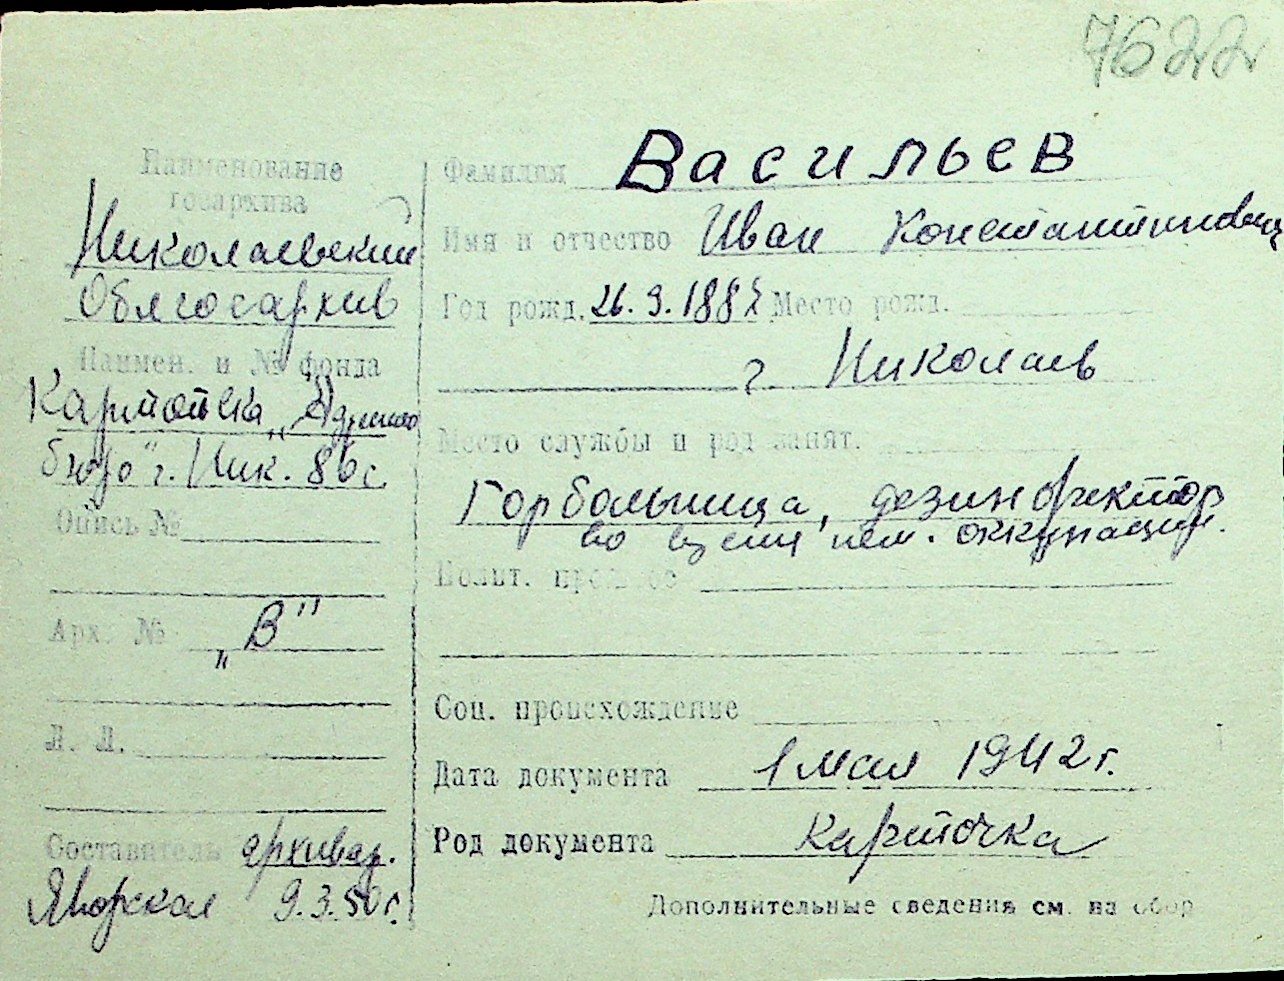 7622
Наименование
госархива
Николаевский
Облгосархив
Наимен. и № фонда
Картотека „Адресное
бюро" г. Ник. 86 с.
Опись №
Арх. № „В"
Л. Л.
Составитель архивар.
Яворская 9.3.50 г.
Фамилия Васильев
Имя и отчество Иван Константинович
Год рожд. 26.9.188 Место рожд.
г. Николаев
Место службы и род занят.
Горбольница, дезинфектор
во время нем. оккупации.
Полит. прошлое
Соц. происхождение
Дата документа 1 мая 1942 г.
Род документа карточка
Дополнительные сведения см. на обор